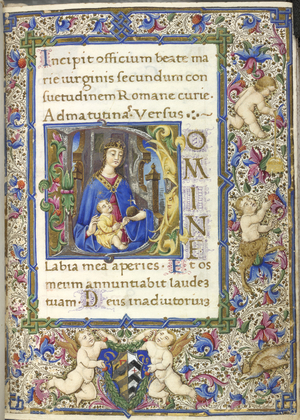 Incipit officium beate ma
rie virginis secundum con
suetudinem Romane curie.
Ad matutinaʒ Versus
DOMINE
Labia mea aperies. Et os
meum annuntiabit laudeʒ
tuam Deus in adiutoriuʒ